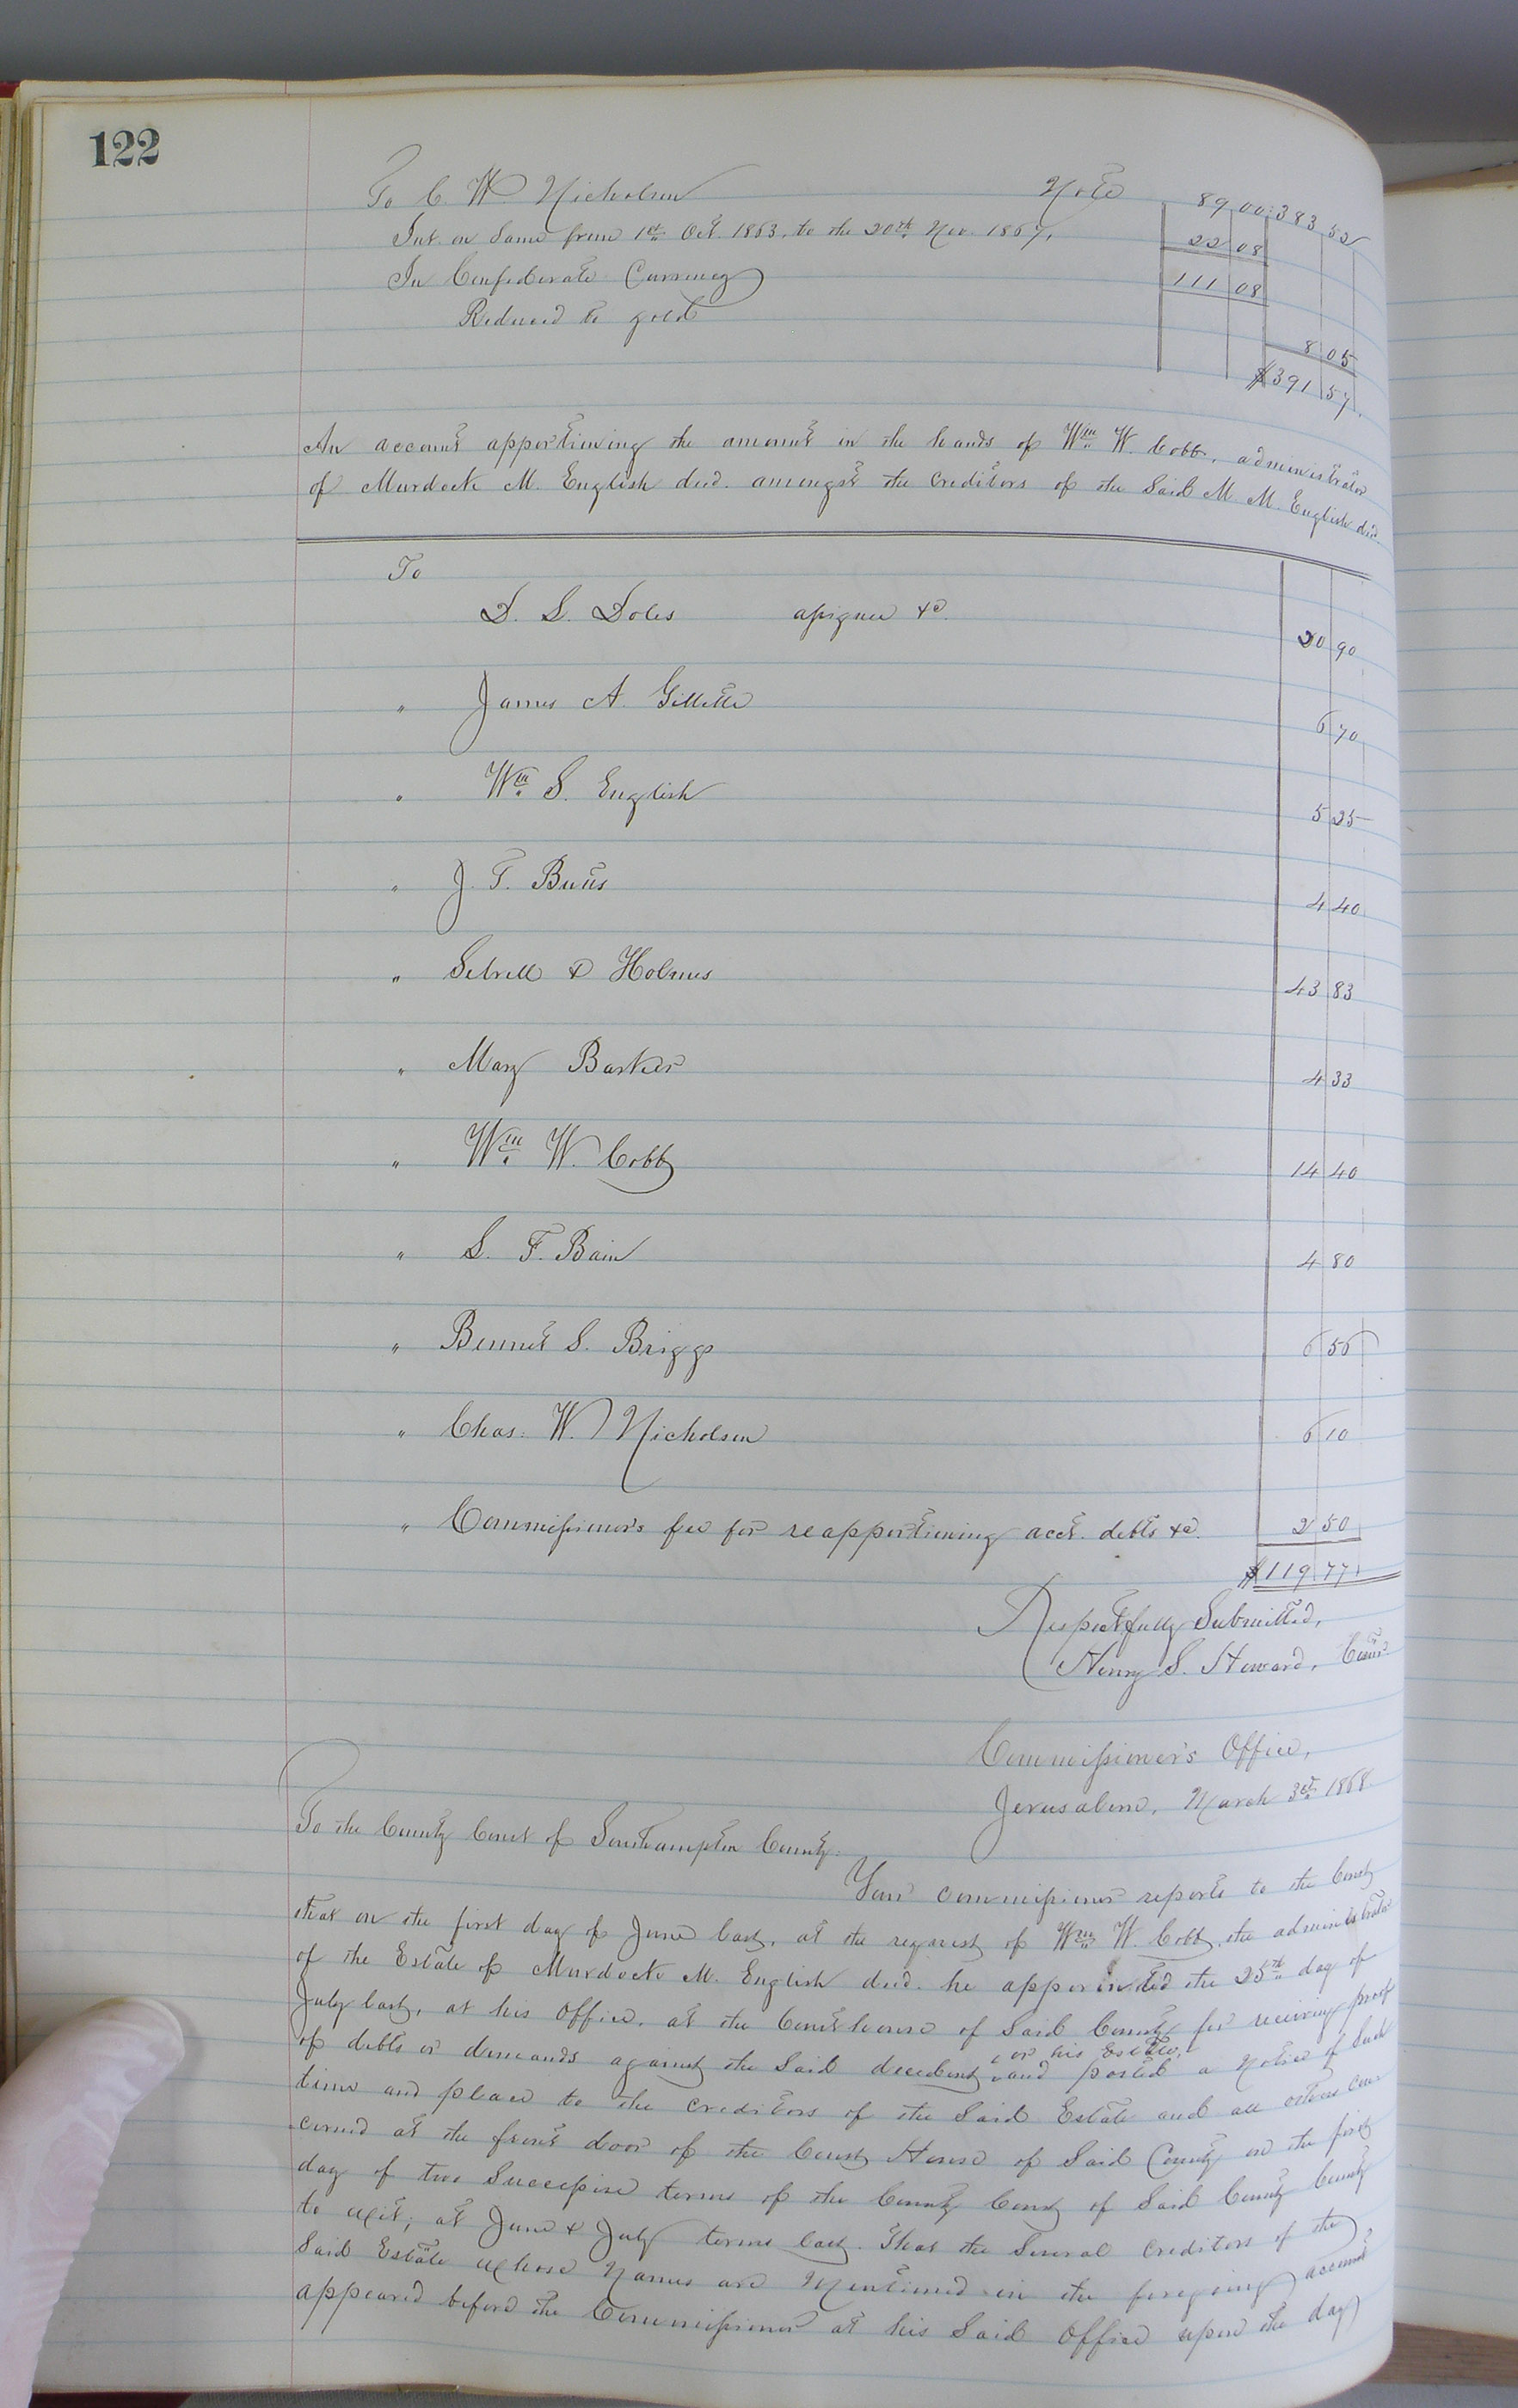 122
To C. W Nicholson Note 89 00 383 52
Int. on Same from 1st Oct. 1863. to the 20th Nov. 1867. 22 08
In Confederate Currency 111 08
Reduced to gold 8 05
$391 57.
An account apportioning the amount in the hands of Wm W. Cobb, administrator
of Murdock M. English decd. amongst the Creditors of the Said M. M. English decd.
To
D. S. Doles assignee &c. 20 90
" James A. Gillette 6 70
" Wm S. English 5 25
" J. T. Butts 4 40
" Sebrell & Holmes 43 83
" Mary Barker 4 33
" Wm W. Cobb 14 40
" S. F. Bain 4 80
" Bennet S. Briggs 6 56
" Chas: W. Nicholson 6 10
" Commissioner's fee for reapportioning acct. debts &c. 2 50
$119 77
Respectfully Submitted,
Henry S. Howard, Comr.
Commissioner's Office,
Jerusalem, March 3rd 1868.
To the County Court of Southampton County.
Your commissioner reports to the Court
that on the first day of June last, at the request of Wm W. Cobb, the administrator
of the Estate of Murdock M. English decd. he appointed the 25th day of
July last, at his Office, at the Courthouse of Said County for receiving proof
of debts or demands against the Said decedent, or his Estate, and posted a Notice of Such
time and place to the Creditors of the Said Estate and all others con
cerned at the front door of the Court House of Said County on the first
day of two Successive terms of the County Court of Said County County
to wit; at June & July terms last. That the Several Creditors of the
Said Estate whose Names are Mentioned in the foregoing account
appeared before the Commissioner at his Said Office upon the day